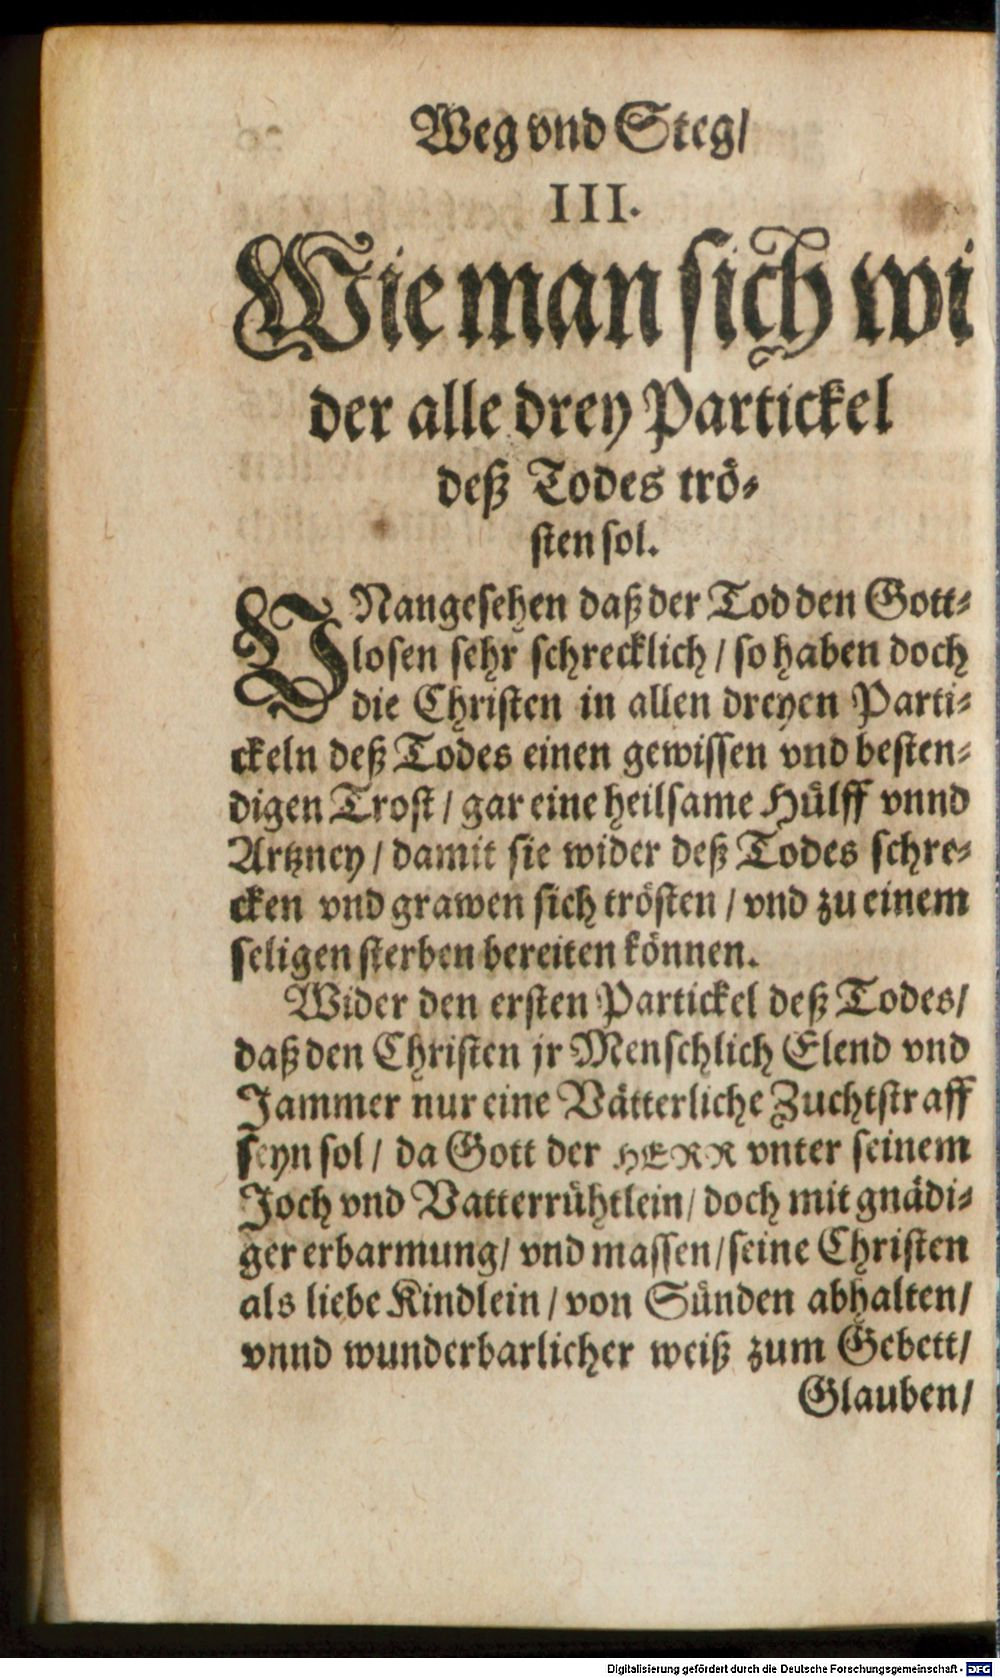 Weg vnd Steg/
III.
Wie man sich wi
der alle drey Partickel
deß Todes trö⸗
sten sol.
VNangesehen daß der Tod den Gott⸗
losen sehr schrecklich / so haben doch
die Christen in allen dreyen Parti⸗
ckeln deß Todes einen gewissen vnd besten⸗
digen Trost / gar eine heilsame Hülff vnnd
Artzney / damit sie wider deß Todes schre⸗
cken vnd grawen sich trösten / vnd zu einem
seligen sterben bereiten können.
Wider den ersten Partickel deß Todes/
daß den Christen jr Menschlich Elend vnd
Jammer nur eine Vätterliche Zuchtstraff
seyn sol / da Gott der HERR vnter seinem
Joch vnd Vatterrühtlein / doch mit gnädi⸗
ger erbarmung / vnd massen / seine Christen
als liebe Kindlein / von Sünden abhalten/
vnnd wunderbarlicher weiß zum Gebett/
Glauben/
Digitalisierung gefördert durch die Deutsche Forschungsgemeinschaft - DFG